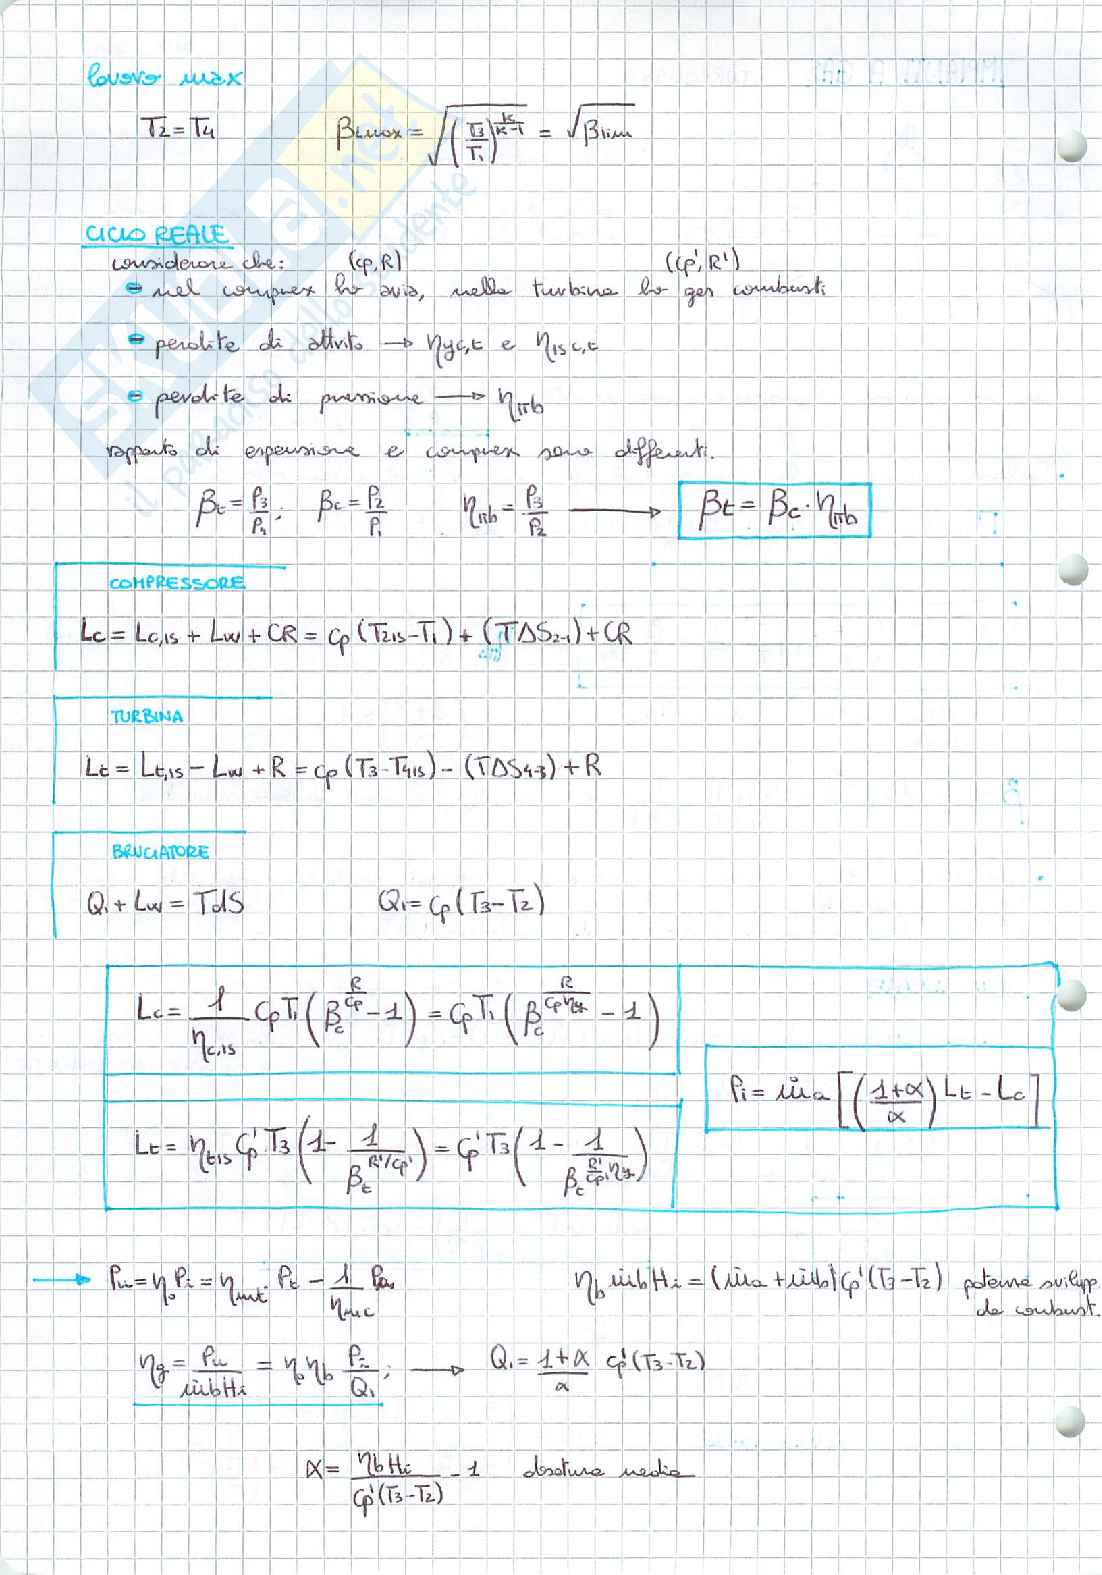 lavoro max
T2 = T4    βLmax = √((T3/T1)^(K/(K-1))) = √βlim
CICLO REALE
considerare che:    (cp, R)    (cp', R')
- nel compress ho aria, nella turbina ho gas combusti
- perdite di attrito → ηyc,t e ηis c,t
- perdite di pressione → ηπb
rapporto di espansione e compress sono differenti.
βt = P3/P4;    βc = P2/P1    ηπb = P3/P2 → βt = βc · ηπb
COMPRESSORE
Lc = Lc,is + Lw + CR = cp (T2is - T1) + (TΔS2-1) + CR
TURBINA
Lt = Lt,is - Lw + R = cp (T3 - T4is) - (TΔS4-3) + R
BRUCIATORE
Q1 + Lw = TdS    Q1 = cp (T3 - T2)
Lc = 1/ηc,is cp T1 (βc^(R/cp) - 1) = cp T1 (βc^(R/(cp ηy)) - 1)
Pi = ṁa [((1+α)/α) Lt - Lc]
Lt = ηtis cp' T3 (1 - 1/βt^(R'/cp')) = cp' T3 (1 - 1/βt^(R'/cp' ηy))
→ Pu = ηo Pi = ηmt Pt - 1/ηmc Pc    ηb ṁb Hi = (ṁa + ṁb) cp' (T3 - T2) potenza svilupp.
da combust.
ηg = Pu/ṁbHi = ηo ηb Pi/Q1; → Q1 = (1+α)/α cp' (T3 - T2)
α = ηb Hi/(cp' (T3 - T2)) - 1    dosatura media
SKUOLA.net
il paradiso dello studente